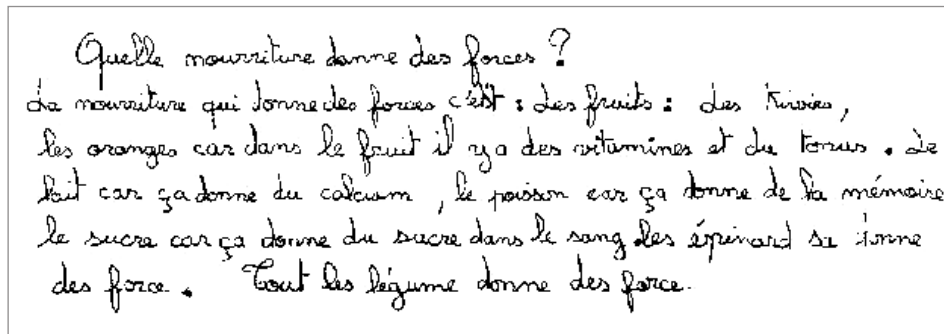 Quelle nourriture donne des forces ?
La nourriture qui donne des forces c'est : Les fruits : des Kiwies,
les oranges car dans le fruit il y a des vitamines et du tonus. Le
lait car ça donne du calcium, le poisson car ça donne de la mémoire
le sucre car ça donne du sucre dans le sang. les épinard sa donne
des force. Tout les légume donne des force.